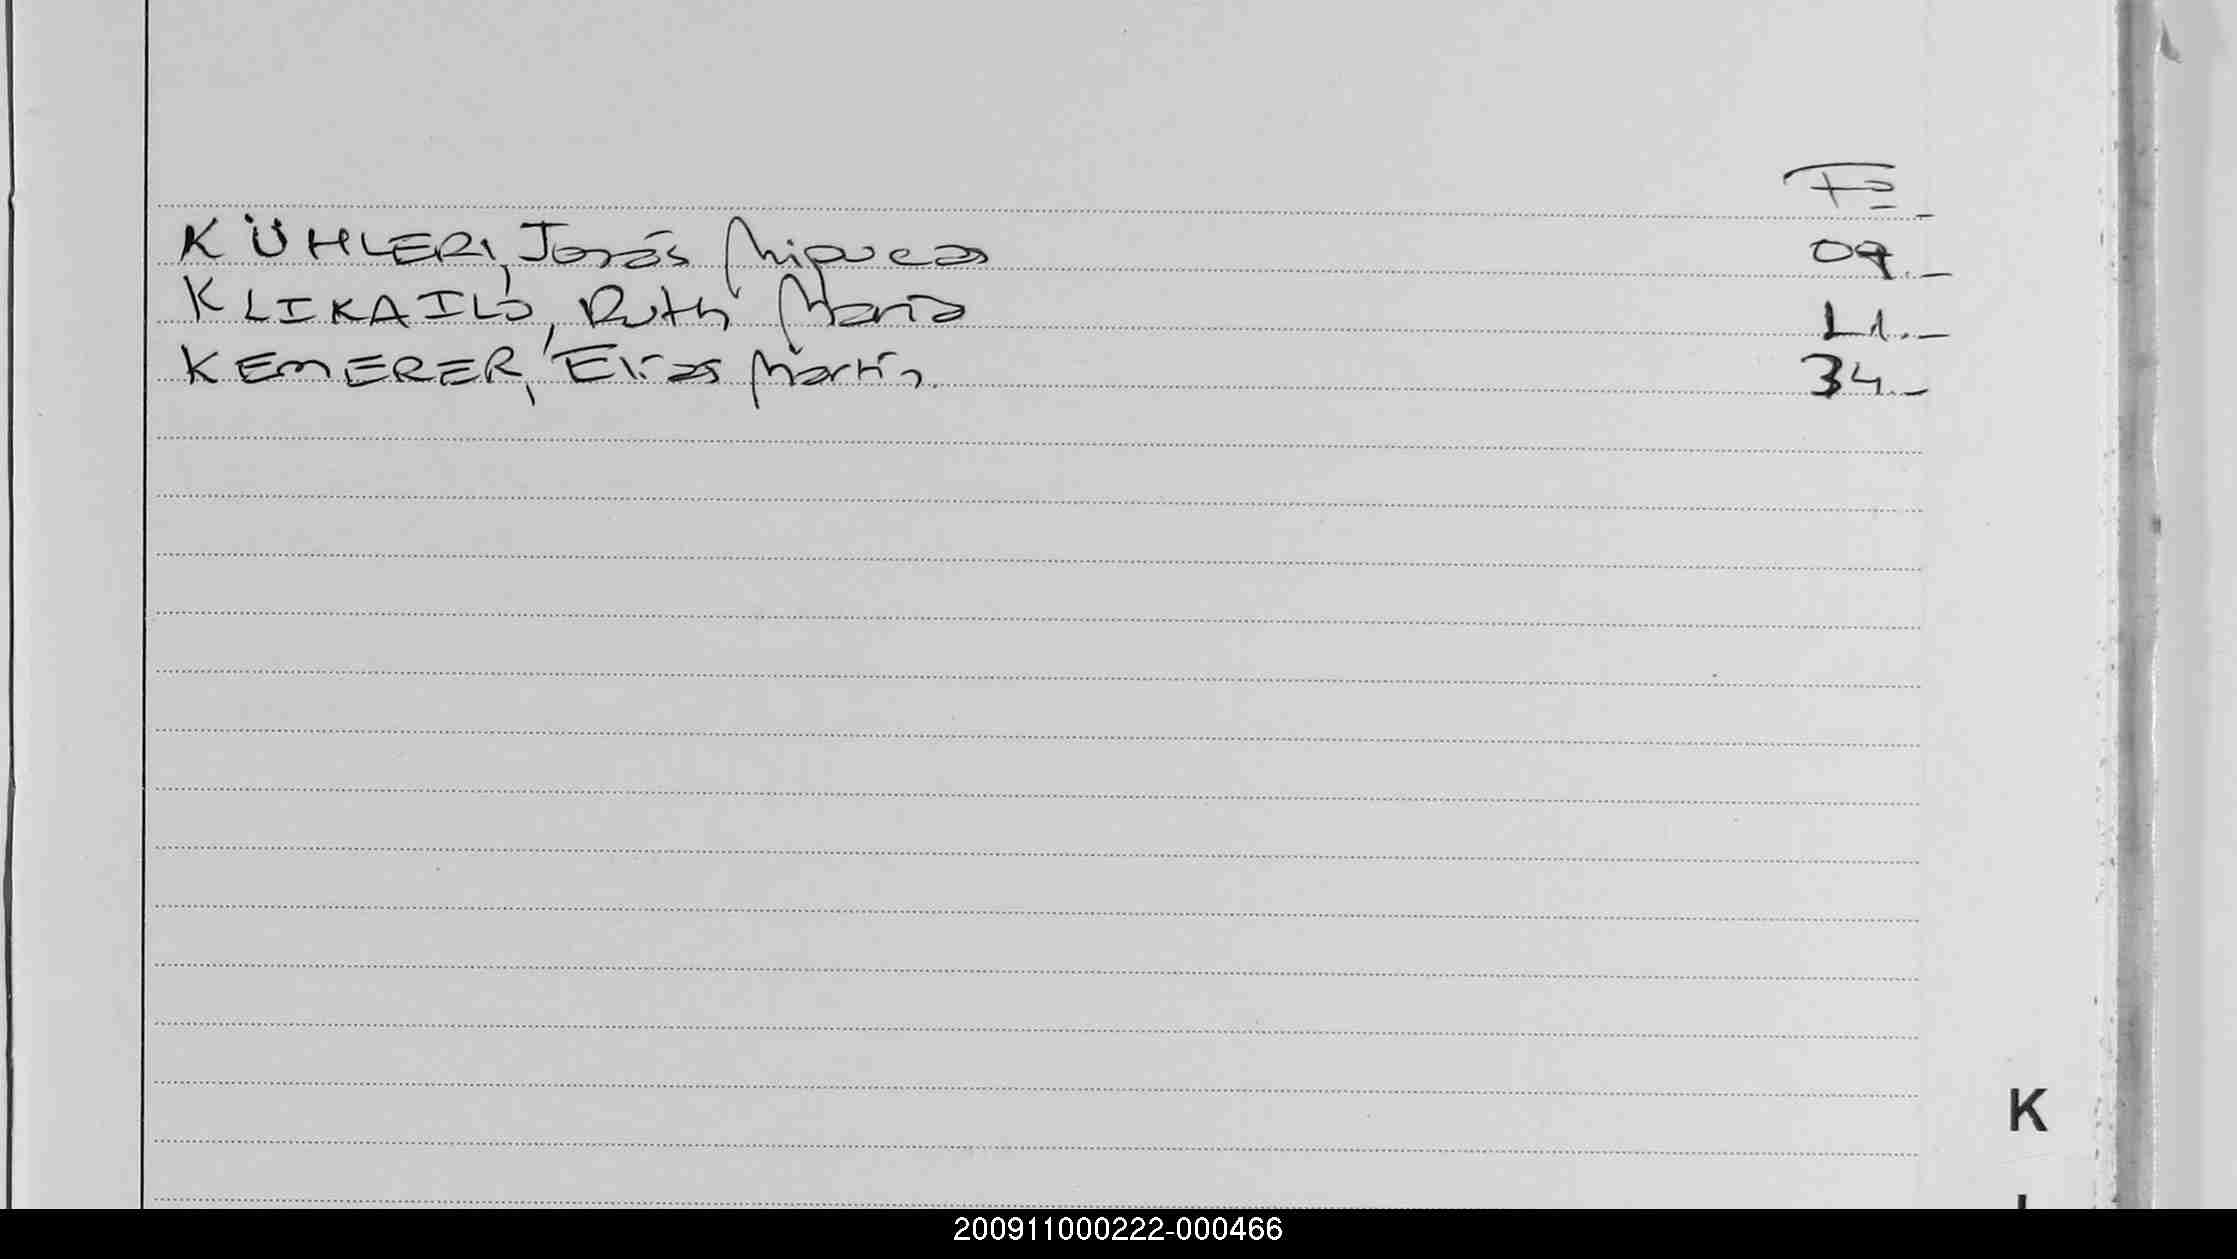 Fº
KÜHLER, Jonás Miqueas 09.-
KLIKAILO, Ruth María 11.-
KEMERER, Elías Martín. 34.-
K
200911000222-000466